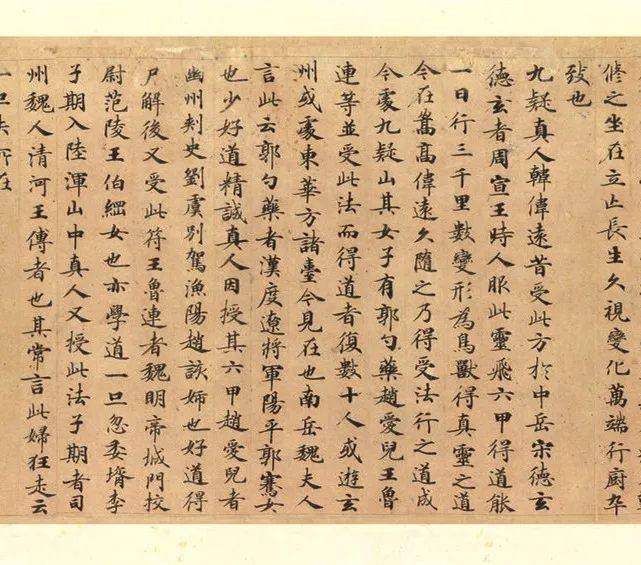 脩之坐在立亡長生久視變化萬端行廚卒
致也
九疑真人韓偉遠昔受此方於中岳宋德玄
德玄者周宣王時人服此靈飛六甲得道能
一日行三千里數變形為鳥獸得真靈之道
今在嵩高偉遠久隨之乃得受法行之道成
今處九疑山其女子有郭勺藥趙愛兒王魯
連等並受此法而得道者復數十人或遊玄
州或處東華方諸臺今見在也南岳魏夫人
言此云郭勺藥者漢度遼將軍陽平郭騫女
也少好道精誠真人因授其六甲趙愛兒者
幽州刾史劉虞別駕漁陽趙該姊也好道得
尸解後又受此符王魯連者魏明帝城門挍
尉范陵王伯綱女也亦學道一旦忽委壻李
子期入陸渾山中真人又授此法子期者司
州魏人清河王傳者也其常言此婦狂走云
一旦失所在